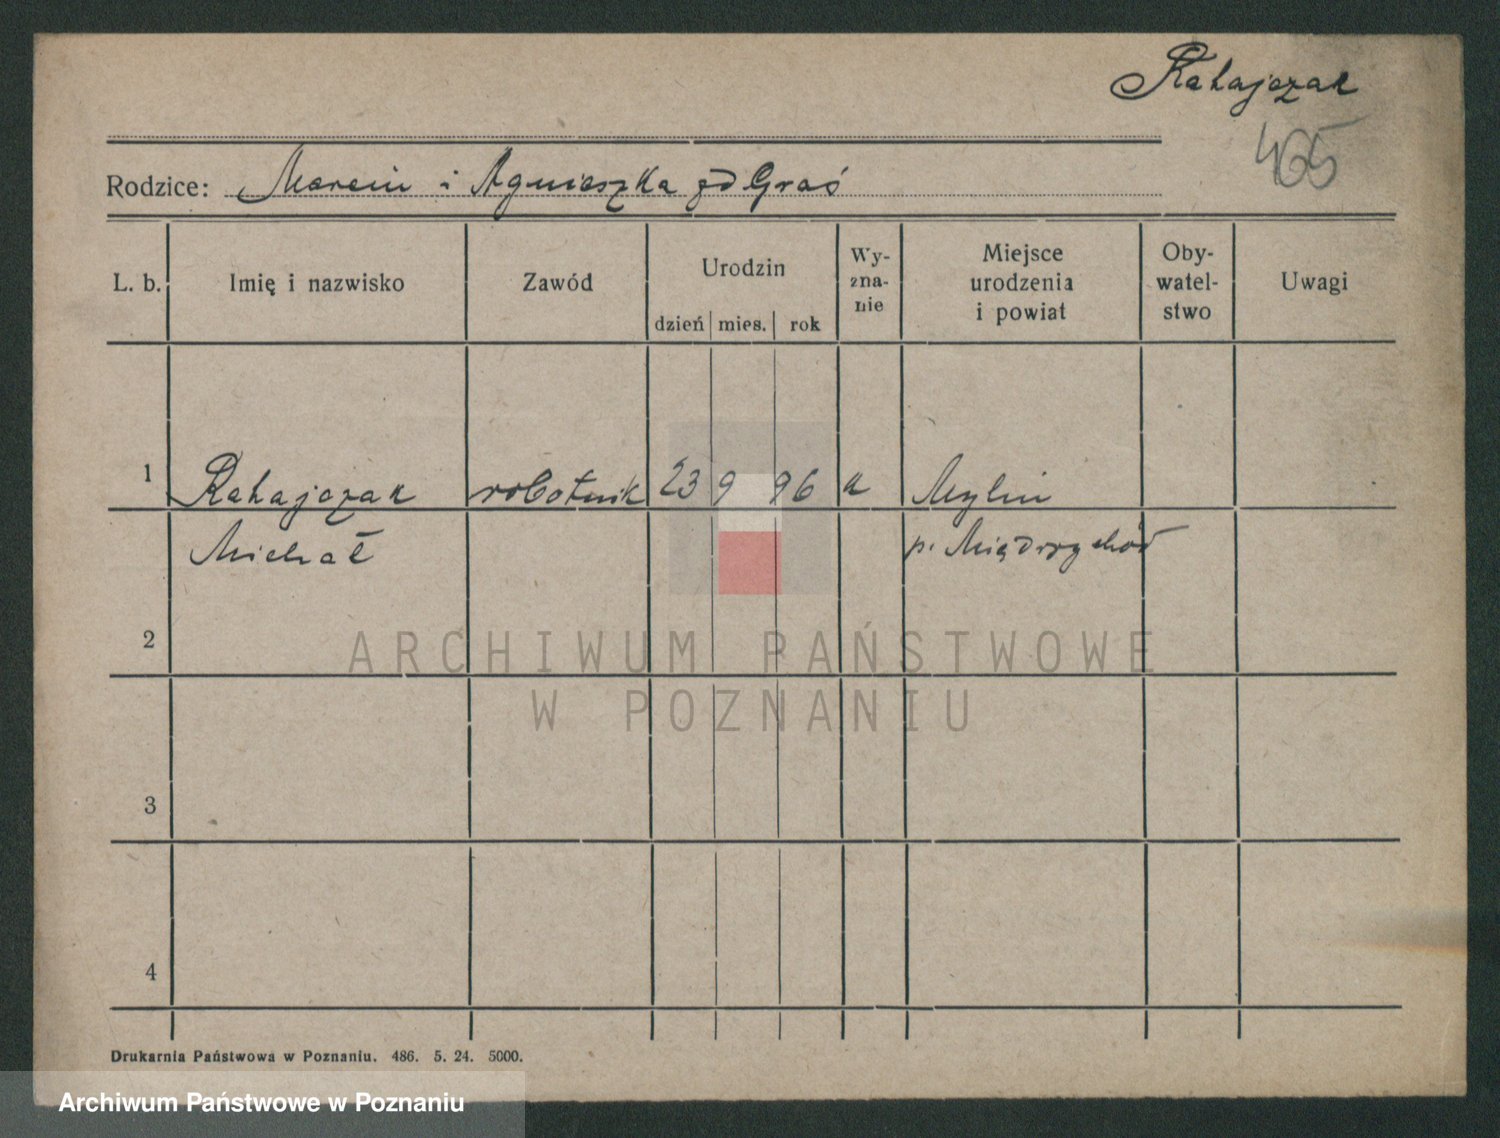 Rahajczak
465
Rodzice: Marcin i Agnieszka zd Graś
L. b. Imię i nazwisko Zawód Urodzin dzień mies. rok Wy-zna-nie Miejsce urodzenia i powiat Oby-watel-stwo Uwagi
1 Rahajczak robotnik 23 9 96 k Mylin
Michał p. Międzychód
2
3
4
Drukarnia Państwowa w Poznaniu. 486. 5. 24. 5000.
ARCHIWUM PAŃSTWOWE
W POZNANIU
Archiwum Państwowe w Poznaniu